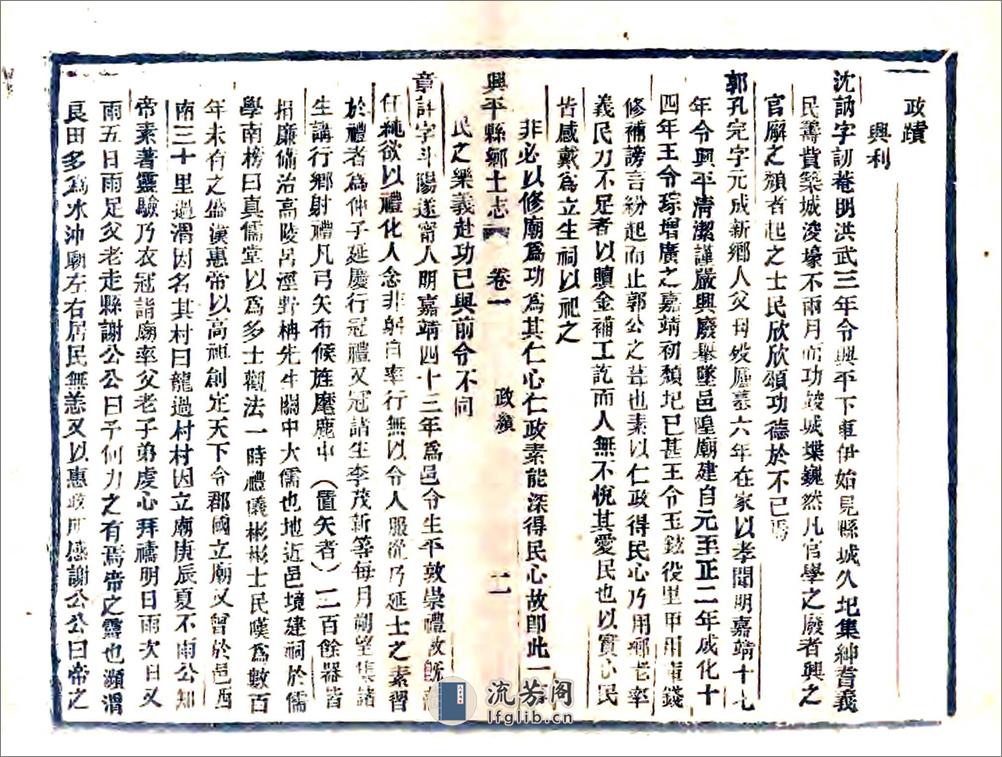 政蹟
興利
沈訥字訒菴明洪武三年令興平下車伊始見縣城久圮集紳耆義
民籌貲築城浚壕不兩月而功竣城堞巍然凡官學之廢者興之
官廨之頽者起之士民欣欣頌功德於不已焉
郭孔完字元成新鄉人父母歿廬墓六年在家以孝聞明嘉靖十七
年令興平清潔謹嚴興廢舉墜邑隍廟建自元至正二年成化十
四年王令琮增廣之嘉靖初頽圮已甚王令玉鉉役里甲用軍錢
修補謗言紛起而止郭公之葺也素以仁政得民心乃用鄉老率
義民力不足者以贖金補工訖而人無不悅其愛民也以實心民
皆感戴為立生祠以祀之
非必以修廟為功為其仁心仁政素能深得民心故即此一
民之樂義赴功已與前令不同
興平縣鄉土志 卷一 政績 二
章評字斗陽遂甯人明嘉靖四十三年為邑令生平敦崇禮教既
任純欲以禮化人念非躬自率行無以令人服從乃延士之素習
於禮者為仲子延慶行冠禮又冠諸生李茂新等每月朔望集諸
生講行鄉射禮凡弓矢布候旌麾鹿中（置矢者）一二百餘器皆
捐廉備治高陵呂涇野柟先生關中大儒也地近邑境建祠於儒
學南榜曰真儒堂以為多士觀法一時禮儀彬彬士民嘆為數百
年未有之盛漢惠帝以高祖創定天下令郡國立廟又曾於邑西
南三十里過渭因名其村曰龍過村村因立廟庚辰夏不雨公知
帝素著靈驗乃衣冠詣廟率父老子弟虔心拜禱明日雨次日又
雨五日雨足父老走縣謝公公曰予何力之有焉帝之靈也瀕渭
良田多為水沖廟左右居民無恙又以惠政所感謝公公曰帝之
流芳阁
lfglib.cn